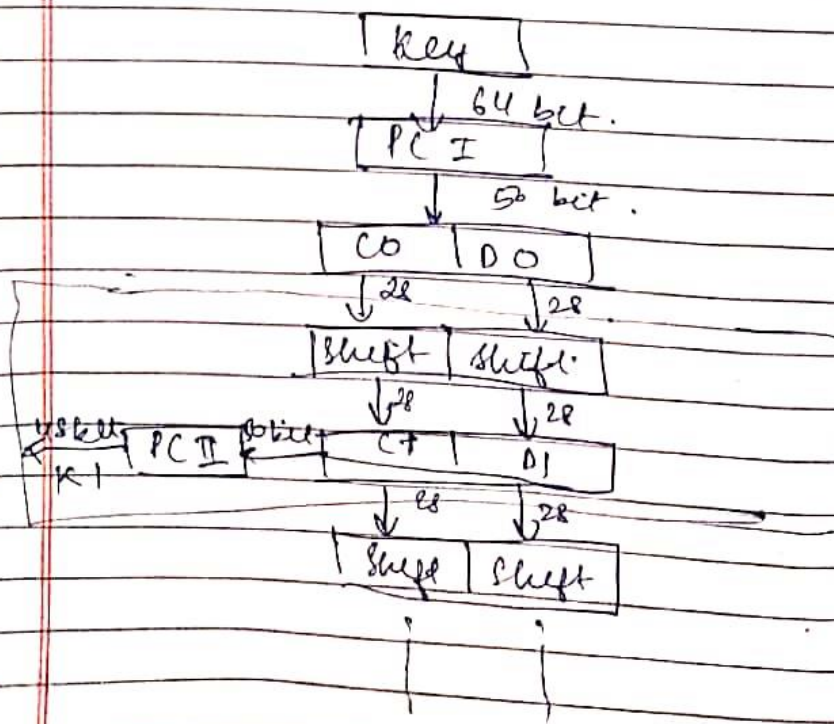 Key
64 bit.
PC I
56 bit.
C0 D0
28 28
Shift Shift.
28 28
48 bit PC II 56 bit C1 D1
K1
28 28
Shift Shift